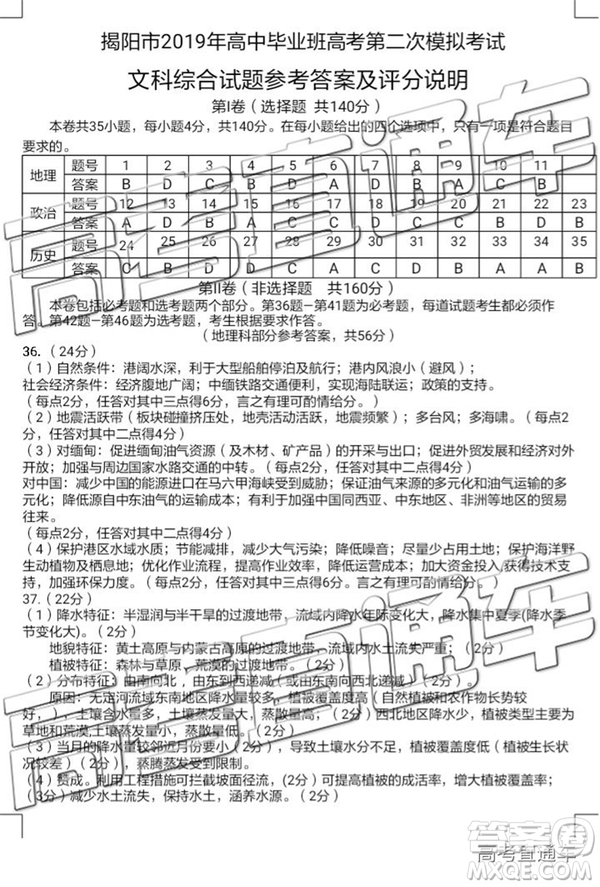 揭阳市2019年高中毕业班高考第二次模拟考试
文科综合试题参考答案及评分说明
第I卷（选择题 共140分）
本卷共35小题，每小题4分，共140分。在每小题给出的四个选项中，只有一项是符合题目
要求的。
地理 题号 1 2 3 4 5 6 7 8 9 10 11
答案 B D C B D A D B A C B
政治 题号 12 13 14 15 16 17 18 19 20 21 22 23
历史 题号 24 25 26 27 28 29 30 31 32 33 34 35
第II卷（非选择题 共160分）
本卷包括必考题和选考题两个部分。第36题—第41题为必考题，每道试题考生都必须作
答。第42题—第46题为选考题，考生根据要求作答。
（地理科部分参考答案，共56分）
36.（24分）
（1）自然条件：港阔水深，利于大型船舶停泊及航行；港内风浪小（避风）；
社会经济条件：经济腹地广阔；中缅铁路交通便利，实现海陆联运；政策的支持。
（每点2分，任答对其中三点得6分，言之有理可酌情给分）
（2）地震活跃带（板块碰撞挤压处，地壳活动活跃，地震频繁）；多台风；多海啸。（每点2
分，任答对其中二点得4分）
（3）对缅甸：促进缅甸油气资源（及木材、矿产品）的开采与出口；促进外贸发展和经济对外
开放；加强与周边国家水路交通的中转。（每点2分，任答对其中二点得4分）
对中国：减少中国的能源进口在马六甲海峡受到威胁；保证油气来源的多元化和油气运输的多
元化；降低原自中东油气的运输成本；有利于中国同西亚、中东地区、非洲等地区的贸易
往来。
（每点2分，任答对其中二点得4分）
（4）保护港区水域水质；节能减排，减少大气污染；降低噪音、尽量少占用土地；保护海洋野
生动植物及栖息地；优化作业流程，提高作业效率，降低运营成本；有效利用资源；获得技术支
持，加强环保力度。（每点2分，任答对其中三点得6分，言之有理可酌情给分）
37.（22分）
（1）降水特征：半湿润与半干旱的过渡地带，流域内降水年际变化大，降水集中夏季(降水季
节变化大)。（2分）
地貌特征：黄土高原与内蒙古高原的过渡地带，流域内水土流失严重；（2分）
植被特征：森林与草原、荒漠的过渡地带。（2分）
（2）分布特征：由南向北，由东到西递减（或由东南向西北递减）（2分）
原因：无定河流域东南地区降水量较大，植被覆盖度高（自然植被和农作物长势较
好，），土壤含水量大，土壤蒸发量大，蒸散量高。（2分）西北地区降水量小，植被类型主要为
草地和荒漠,土壤蒸发量小，蒸散量低。（2分）
（3）当月的降水量较邻近月份要小（2分），导致土壤水分不足（2分），植被覆盖度低（生长状
况较差）（2分），蒸腾蒸发量降低。（2分）
（4）赞成。工程措施可拦截坡面径流，（2分）可以提高植被的成活率，增大植被覆盖率；（2
分）减少水土流失，保持水土，涵养水源。（2分）
高考直通车
答案圈
MXQE.COM
高考直通车